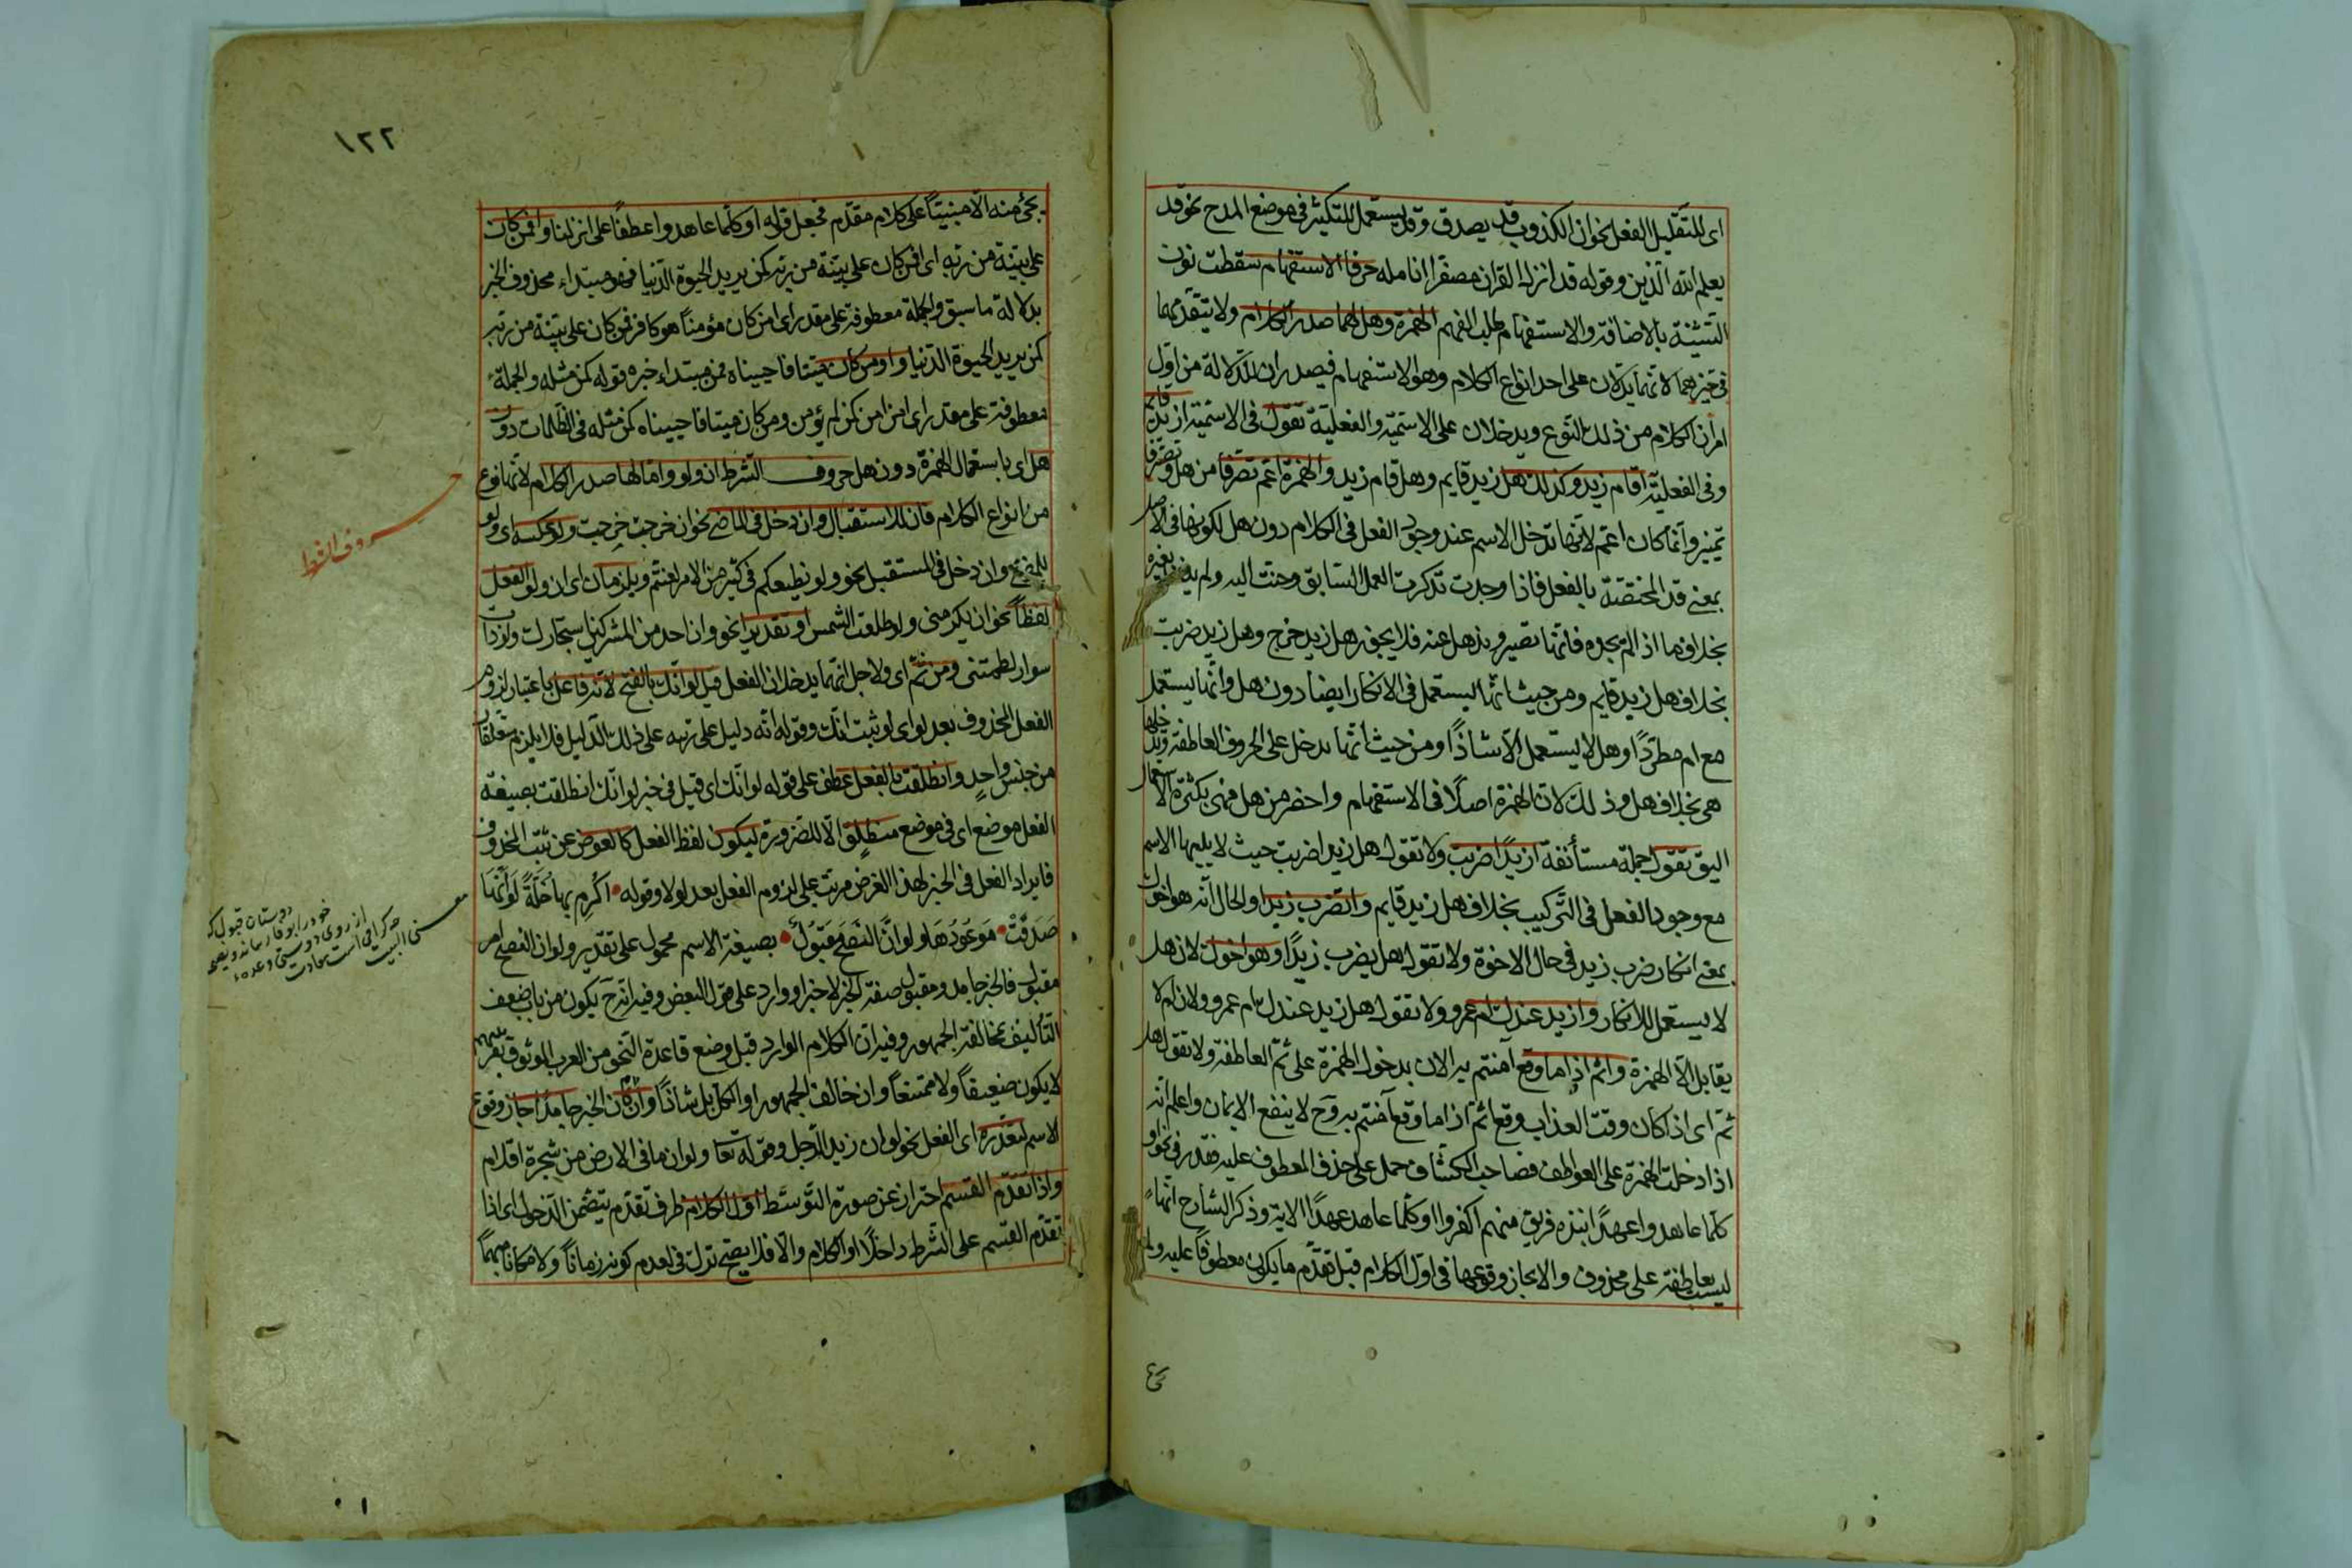 اى للتقليل الفعل نحو ان الكذوب قد يصدق وقد يستعمل للتكثير فى موضع المدح نحو قد
يعلم الله الذين وقوله قد انزل القران مصفرا انامله حرفا الاستفهام سقطت نون
التثنية بالاضافة والاستفهام طلب الفهم الهمزة وهل لهما صدر الكلام ولا يتقدمهما
فى حيزهما لانهما يدلان على احد انواع الكلام وهو الاستفهام فيصدران للدلالة من اول
امر ان الكلام من ذلك النوع ويدخلان على الاسمية والفعلية تقول فى الاسمية ازيد قايم
وفى الفعلية اقام زيد وكذلك هل زيد قايم وهل قام زيد والهمزة اعم تصرفا من هل وتصرفا
تمييز وانما كان اعم لانها تدخل الاسم عند وجود الفعل فى الكلام دون هل لكونها فى الاصل
بمعنى قد المختصة بالفعل فاذا وجدت تذكرت العمل السابق وحنت اليه ولم بغيره
بخلاف ما اذا لم تجده فانها تصير وتذهل عنه فلا يجوز هل زيد خرج وهل زيد ضربت
بخلاف هل زيد قايم ومن حيث انها ليستعمل فى الانكار ايضا دون هل وانها يستعمل
مع ام مطردا وهل لا ليستعمل الا شاذا ومن حيث انها تدخل على الحروف العاطفة
هى بخلاف هل وذلك لان الهمزة اصلا فى الاستفهام واخصر من هل فهى بكثرة الاستعمال
اليق تقول جملة مستأنفة ازيدا ضربت ولا تقول هل زيدا ضربت حيث لا يليها الاسم
مع وجود الفعل فى التركيب بخلاف هل زيد قايم واتضرب زيدا والحال انه هو اخوك
بمعنى انكار ضرب زيد فى حال الاخوة ولا تقول هل يضرب زيدا وهو اخوك لان هل
لا يستعمل للانكار وازيد عندك ام عمرو ولا تقول هل زيد عندك ام عمرو ولان ام لا
يقابل الا الهمزة واثم اذا ما وقع امنتم به الان بدخول الهمزة على ثم العاطفة ولا تقول هل
ثم اى اذا كان وقت العذاب وقع اثم اذا ما وقع آمنتم به وح لا ينفع الايمان واعلم انه
اذا دخلت الهمزة على العواطف فصاحب الكشاف حمل على حذف المعطوف عليه فقدر فى نحو او
كلما عاهدوا عهدا نبذه فريق منهم اكفروا او كلما عاهد عهدا الاية وذكر الشارح انها
ليست بعاطفة على محذوف والا لجاز وقوعها فى اول الكلام قبل تقدم ما يكون معطوفا عليه ولم
١٢٢
يجئ منه الا مبنيا على كلام مقدم فجعل قوله او كلما عاهدوا عطفا على انزلنا وافمن كان
على بينة من ربه اى افمن كان على بينة من ربه كمن يريد الحيوة الدنيا فهو مبتداء محذوف الخبر
بدلالة ما سبق والجملة معطوفة على مقدر اى امن كان مؤمنا هو كافر فمن كان على بينة من ربه
كمن يريد الحيوة الدنيا واومن كان ميتا فاحييناه فمن مبتداء خبره قوله كمن مثله والجملة
معطوفة على مقدر اى امن امن كمن لم يؤمن ومن كان ميتا فاحييناه كمن مثله فى الظلمات دون
هل اى باستعمال الهمزة دون هل حروف الشرط ان ولو واما لها صدر الكلام لانها نوع
من انواع الكلام فان للاستقبال وان دخل فى الماضى نحو ان خرجت خرجت ولو عكسه اى ولو
للماضى وان دخل فى المستقبل نحو ولو نطيعكم فى كثير من الامر لعنتم ويلزمان اى ان ولو الفعل
لفظا نحو ان يكرمنى ولو طلعت الشمس او تقديرا نحو وان احد من المشركين استجارك ولو ذات
سوار لطمتنى ومن ثم اى ولاجل انهما يدخلان الفعل قيل لو انك بالفتح لانه فاعل باعتبار لزوم
الفعل المحذوف بعد لو اى لو ثبت انك وقوله انه دليل على ربه على ذلك الدليل فلا يلزم تعلقان
من جنس واحد وانطلقت بالفعل عطف على قوله لو انك اى قيل فى خبر لو انك انطلقت بصيغة
الفعل موضع اى فى موضع منطلق الا للضرورة ليكون لفظ الفعل كالعوض عن ثبت المحذوف
فايراد الفعل فى الخبر لهذا الغرض مرتب على لزوم الفعل بعد لو لا وقوله اكرم بها خلة لو انها
صدقت موعودها ولو ان النصح مقبول بصيغة الاسم محمول على تقدير ولو ان النصح امر
مقبول فالخبر جامد ومقبول صفة الخبر لا خبر او وارد على قول البعض وفيه انه ح يكون من باب ضعف
التأليف بمخالفة الجمهور وفيه ان الكلام الوارد قبل وضع قاعدة النحو من العرب الموثوق بعربيتهم
لا يكون ضعيفا ولا ممتنعا وان خالف الجمهور او الكل بل شاذا وان كان الخبر جامدا جاز وقوع
الاسم لتعذره اى الفعل نحو لو ان زيد الرجل وقوله تعا ولو ان ما فى الارض من شجرة اقلام
واذا تقدم القسم احتراز عن صورة التوسط اول الكلام ظرف تقدم بتضمن الدخول اى اذا
تقدم القسم على الشرط داخلا او الكلام والا فلا يصح ترك فى لعدم كونه زمانا ولا مكانا مبهما
حروف الشرط